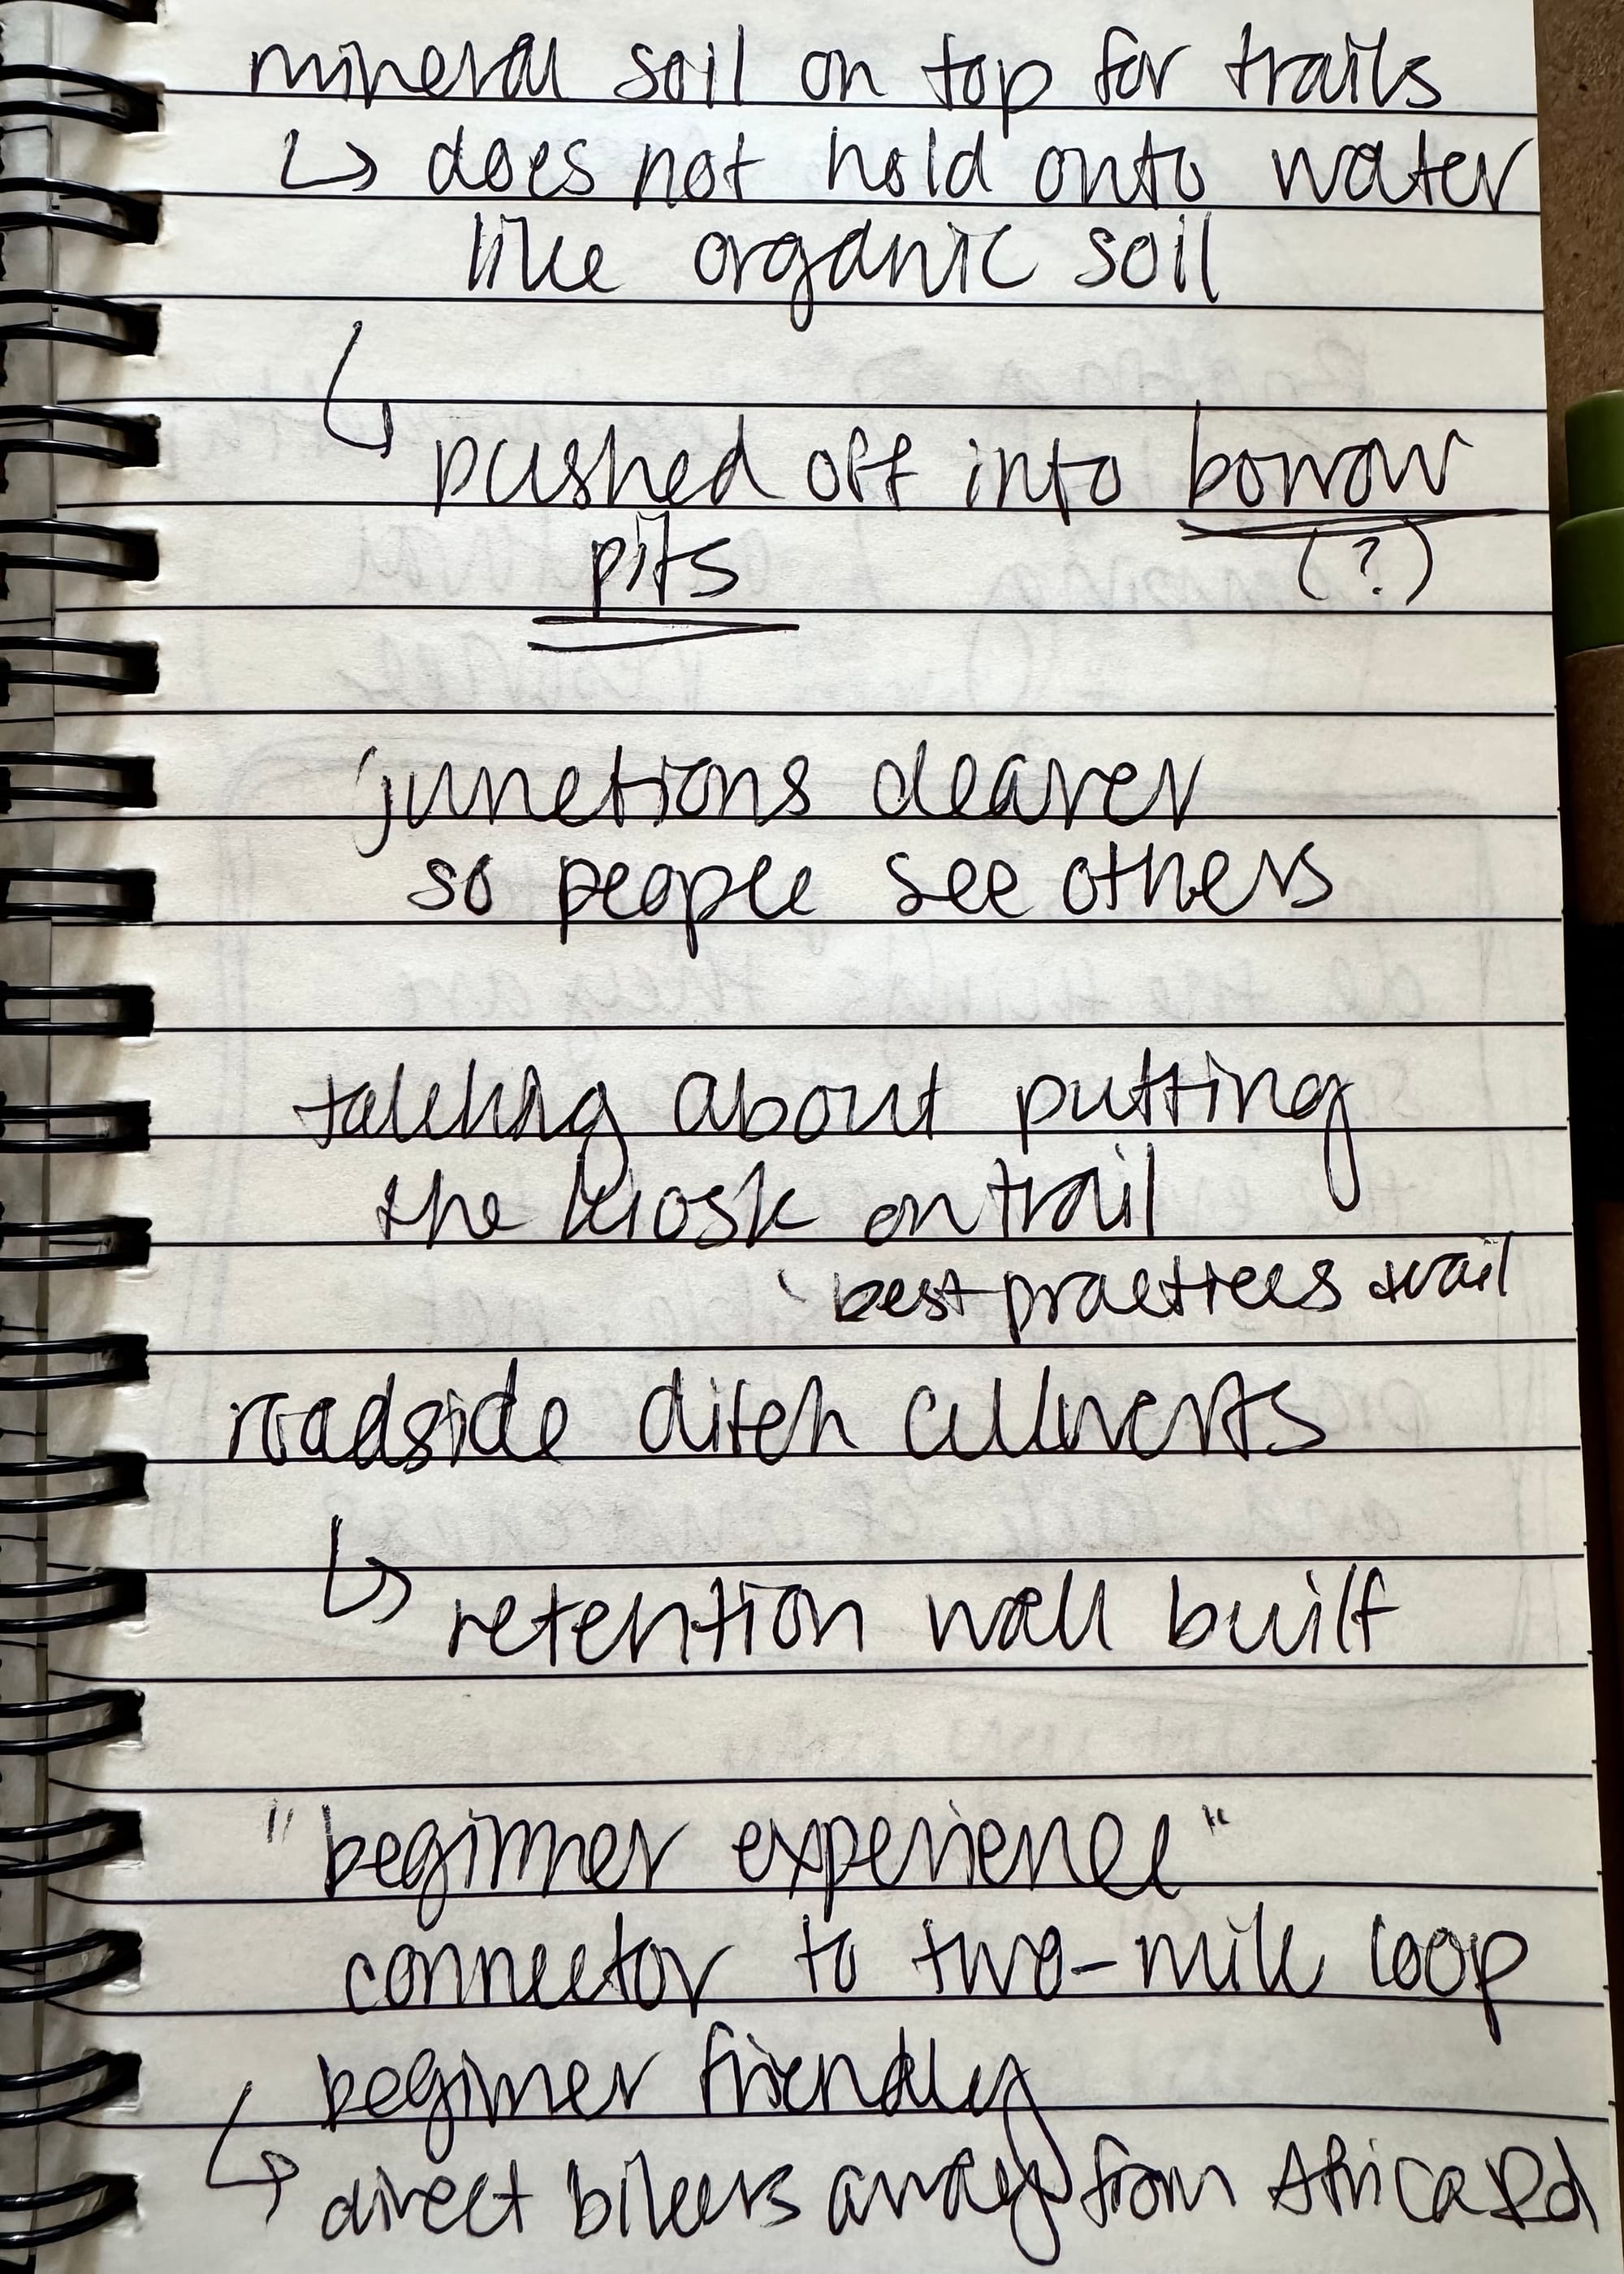 mineral soil on top for trails
↳ does not hold onto water
like organic soil
↳ pushed off into borrow
pits (?)
junctions clearer
so people see others
talking about putting
the kiosk on trail
best practices trail
roadside ditch culverts
↳ retention wall built
"beginner experience"
connector to two-mile loop
beginner friendly
↳ direct bikers away from Africa Rd